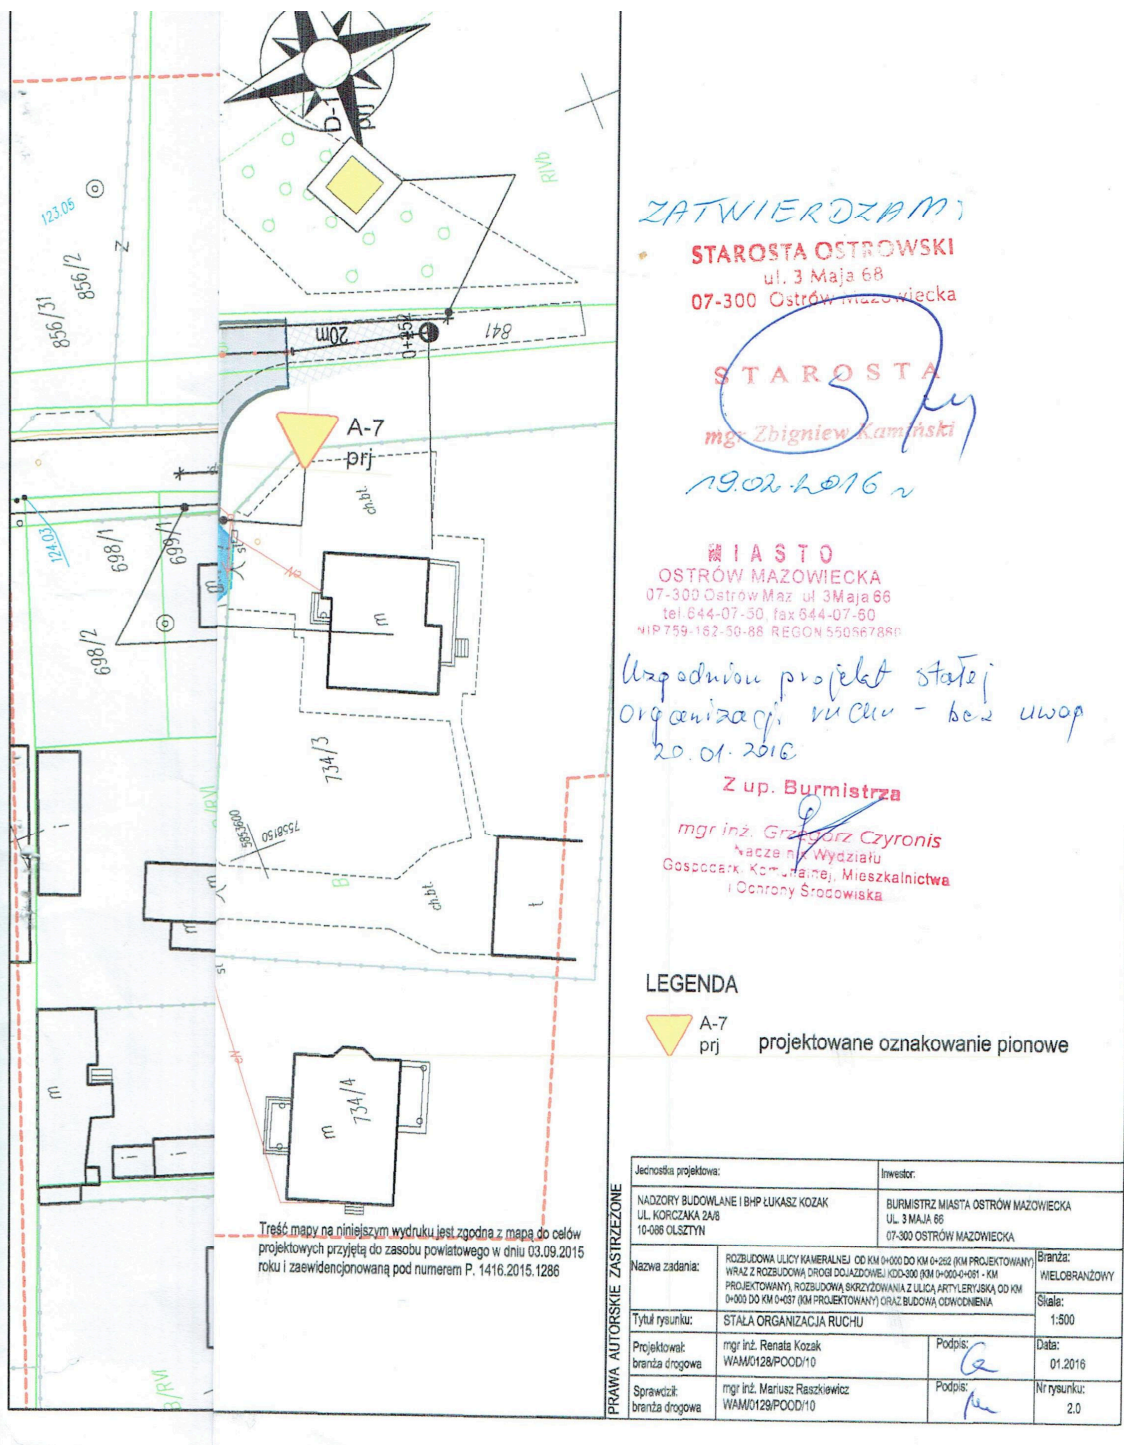 D-1
prj
RIVb
123.05
Z
856/2
856/31
20m
0+252
841
A-7
prj
ch.bt.
124.03
698/1
699/1
698/2
m
m
st
734/3
5853600
7558150
B/RVI
B
ch.bt.
t
i
m
m
st
m
734/4
m
i
i
B/RVI
Treść mapy na niniejszym wydruku jest zgodna z mapą do celów
projektowych przyjętą do zasobu powiatowego w dniu 03.09.2015
roku i zaewidencjonowaną pod numerem P. 1416.2015.1286
ZATWIERDZAM:
STAROSTA OSTROWSKI
ul. 3 Maja 68
07-300 Ostrów Mazowiecka
STAROSTA
mgr Zbigniew Kamiński
19.02.2016 r
MIASTO
OSTRÓW MAZOWIECKA
07-300 Ostrów Maz. ul 3 Maja 66
tel.644-07-50, fax 644-07-60
NIP 759-162-50-88 REGON 550667860
Uzgodniono projekt stałej
organizacji ruchu - bez uwag
20.01.2016
Z up. Burmistrza
mgr inż. Grzegorz Czyronis
Naczelnik Wydziału
Gospodark. Komunalnej, Mieszkalnictwa
i Ochrony Środowiska
LEGENDA
A-7
prj projektowane oznakowanie pionowe
PRAWA AUTORSKIE ZASTRZEŻONE
Jednostka projektowa: Inwestor:
NADZORY BUDOWLANE I BHP ŁUKASZ KOZAK
UL. KORCZAKA 2A/8
10-086 OLSZTYN
BURMISTRZ MIASTA OSTRÓW MAZOWIECKA
UL. 3 MAJA 66
07-300 OSTRÓW MAZOWIECKA
Nazwa zadania:
ROZBUDOWA ULICY KAMERALNEJ OD KM 0+000 DO KM 0+252 (KM PROJEKTOWANY)
WRAZ Z ROZBUDOWĄ DROGI DOJAZDOWEJ KDD-300 (KM 0+000-0+061 - KM
PROJEKTOWANY), ROZBUDOWĄ SKRZYŻOWANIA Z ULICĄ ARTYLERYJSKĄ OD KM
0+000 DO KM 0+037 (KM PROJEKTOWANY) ORAZ BUDOWĄ ODWODNIENIA
Branża:
WIELOBRANŻOWY
Skala:
1:500
Tytuł rysunku: STAŁA ORGANIZACJA RUCHU
Projektował:
branża drogowa
mgr inż. Renata Kozak
WAM/0128/POOD/10
Podpis:
Data:
01.2016
Sprawdził:
branża drogowa
mgr inż. Mariusz Raszkiewicz
WAM/0129/POOD/10
Podpis:
Nr rysunku:
2.0